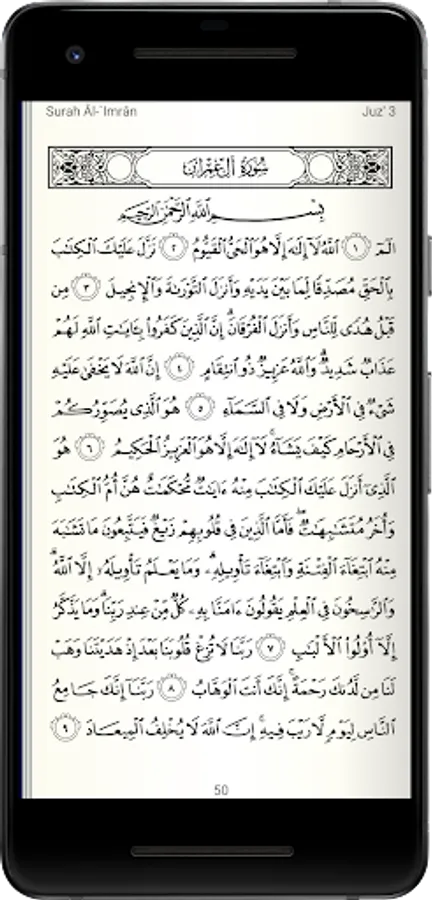 Surah Āl-ʿImrān Juz' 3
سُورَةُ آلِ عِمْرَانَ
بِسْمِ ٱللَّهِ ٱلرَّحْمَٰنِ ٱلرَّحِيمِ
الٓمٓ ١ ٱللَّهُ لَآ إِلَٰهَ إِلَّا هُوَ ٱلْحَىُّ ٱلْقَيُّومُ ٢ نَزَّلَ عَلَيْكَ ٱلْكِتَٰبَ
بِٱلْحَقِّ مُصَدِّقًا لِّمَا بَيْنَ يَدَيْهِ وَأَنزَلَ ٱلتَّوْرَىٰةَ وَٱلْإِنجِيلَ ٣ مِن
قَبْلُ هُدًى لِّلنَّاسِ وَأَنزَلَ ٱلْفُرْقَانَ ۗ إِنَّ ٱلَّذِينَ كَفَرُوا۟ بِـَٔايَٰتِ ٱللَّهِ لَهُمْ
عَذَابٌ شَدِيدٌ ۗ وَٱللَّهُ عَزِيزٌ ذُو ٱنتِقَامٍ ٤ إِنَّ ٱللَّهَ لَا يَخْفَىٰ عَلَيْهِ
شَىْءٌ فِى ٱلْأَرْضِ وَلَا فِى ٱلسَّمَآءِ ٥ هُوَ ٱلَّذِى يُصَوِّرُكُمْ
فِى ٱلْأَرْحَامِ كَيْفَ يَشَآءُ ۚ لَآ إِلَٰهَ إِلَّا هُوَ ٱلْعَزِيزُ ٱلْحَكِيمُ ٦ هُوَ
ٱلَّذِىٓ أَنزَلَ عَلَيْكَ ٱلْكِتَٰبَ مِنْهُ ءَايَٰتٌ مُّحْكَمَٰتٌ هُنَّ أُمُّ ٱلْكِتَٰبِ
وَأُخَرُ مُتَشَٰبِهَٰتٌ ۖ فَأَمَّا ٱلَّذِينَ فِى قُلُوبِهِمْ زَيْغٌ فَيَتَّبِعُونَ مَا تَشَٰبَهَ
مِنْهُ ٱبْتِغَآءَ ٱلْفِتْنَةِ وَٱبْتِغَآءَ تَأْوِيلِهِۦ ۗ وَمَا يَعْلَمُ تَأْوِيلَهُۥٓ إِلَّا ٱللَّهُ ۗ
وَٱلرَّٰسِخُونَ فِى ٱلْعِلْمِ يَقُولُونَ ءَامَنَّا بِهِۦ كُلٌّ مِّنْ عِندِ رَبِّنَا ۗ وَمَا يَذَّكَّرُ
إِلَّآ أُو۟لُوا۟ ٱلْأَلْبَٰبِ ٧ رَبَّنَا لَا تُزِغْ قُلُوبَنَا بَعْدَ إِذْ هَدَيْتَنَا وَهَبْ
لَنَا مِن لَّدُنكَ رَحْمَةً ۚ إِنَّكَ أَنتَ ٱلْوَهَّابُ ٨ رَبَّنَآ إِنَّكَ جَامِعُ
ٱلنَّاسِ لِيَوْمٍ لَّا رَيْبَ فِيهِ ۚ إِنَّ ٱللَّهَ لَا يُخْلِفُ ٱلْمِيعَادَ ٩
50